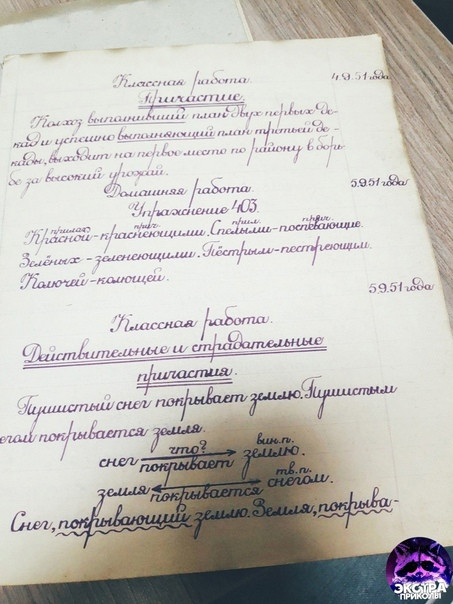 Классная работа. 4.9.51 года
Причастие.
Колхоз выполнивший план двух первых де-
кад и успешно выполняющий план третьей де-
кады, выходит на первое место по району в борь-
бе за высокий урожай.
Домашняя работа. 5.9.51 года
Упражнение 403.
прилаг. прич. прил. прич.
Красной-краснеющими. Спелыми-поспевающие.
Зелёных-зеленеющими. Пёстрым-пестреющим.
Колючей-колющей.
5.9.51 года
Классная работа.
Действительные и страдательные
причастия.
Пушистый снег покрывает землю. Пушистым
негом покрывается земля.
что? вин.п.
снег покрывает землю.
тв.п.
земля покрывается снегом.
Снег, покрывающий землю. Земля, покрыва-
ЭКСТРА
ПРИКОЛЫ